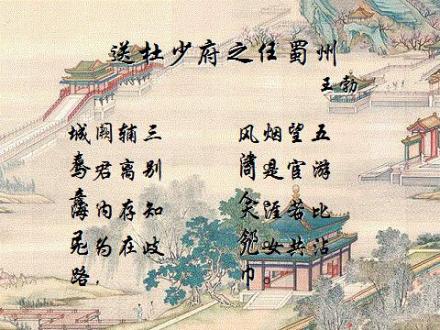 送杜少府之任蜀州
王勃
城阙辅三秦
风烟望五津
与君离别意
同是宦游人
海内存知己
天涯若比邻
无为在歧路,
儿女共沾巾